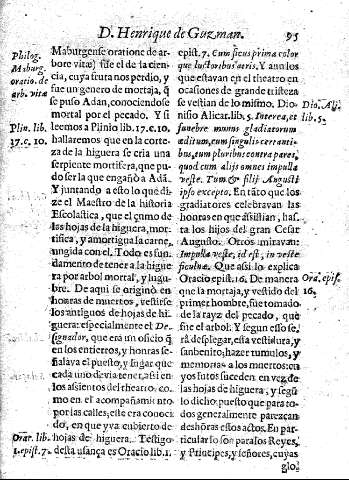 D. Henrique de Guzman. 95
Philog.
Maburg.
oratio. de
arb. vitæ
Plin. lib.
17. c. 10.
Orat. lib.
1. epist. 7.
Maburgense oratione de ar-
bore vitæ) fuè el de la cien-
cia, cuya fruta nos perdio, y
fue un genero de mortaja, q̃
se puso Adan, conociendose
mortal por el pecado. Y si
leemos a Plinio lib. 17. c. 10.
hallaremos que en la corte-
za de la higuera se cria una
serpiente mortifera, que pu-
do ser la que engañò a Adã.
Y juntando a esto lo que di-
ze el Maestro de la historia
Escolastica, que el çumo de
las hojas de la higuera, mor-
tifica, y amortigua la carne,
ungida con el. Todo es fun-
damento de tener a la higue
ra por arbol mortal, y lugu-
bre. De aqui se originò en
honras de muertos, vestirse
los antiguos de hojas de hi-
guera: especialmente el De-
signador, que era un oficio q̃
en los entierros, y honras se-
ñalava el puesto, y lugar que
cada uno devia tener, asi en
los assientos del theatro: co-
mo en el acompañamiẽto
por las calles; este era conoci
do, en que yva cubierto de
hojas de higuera. Testigo
desta usança es Oracio lib. 1.
epist. 7. Cum ficus prima color
que lustoribus atris. Y aun los
que estavan en el theatro en
ocasiones de grande tristeza
se vestian de lo mismo. Dio-
nisio Alicar. lib. 5. Interea, et
funebre munus gladiatorum
æditum, cum singulis certanti-
bus, cum pluribus contra pares,
quod cum alijs omnes impulla
veste. Tum & filij Augusti
ipso excepto. En tãto que los
gladiatores celebravan las
honras en que assistian, has-
ta los hijos del gran Cesar
Augusto. Otros miravan:
Impulla veste, id est, in veste
ficulnæ. Que asi lo explica
Oracio epist. 16. De manera
que la mortaja, y vestido del
primer hombre, fue tomado
de la rayz del pecado, que
fue el arbol: Y segun esso se-
rà desplegar, esta vestidura, y
sanbenito; hazer tumulos, y
memorias a los muertos: en
yos lutos suceden en vez de
las hojas de higuera, y segũ
lo dicho, puesto que para to-
dos generalmente parezcan
deshoras essos actos. En par-
ticular lo son para los Reyes,
y Principes, y señores, cuyas
glo-
Dio. Ali.
lib. 5.
Ora. epis.
16.